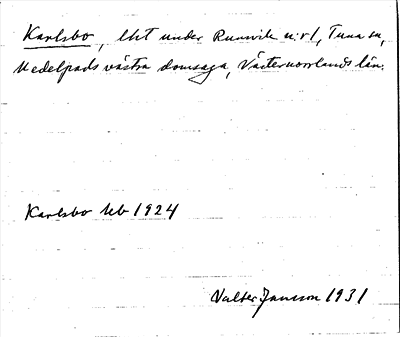 Karlsbo, lht under Runsvik nr 1, Tuna sn,
Medelpads västra domsaga, Västernorrlands län.
Karlsbo Jeb 1924
Valter Jansson 1931